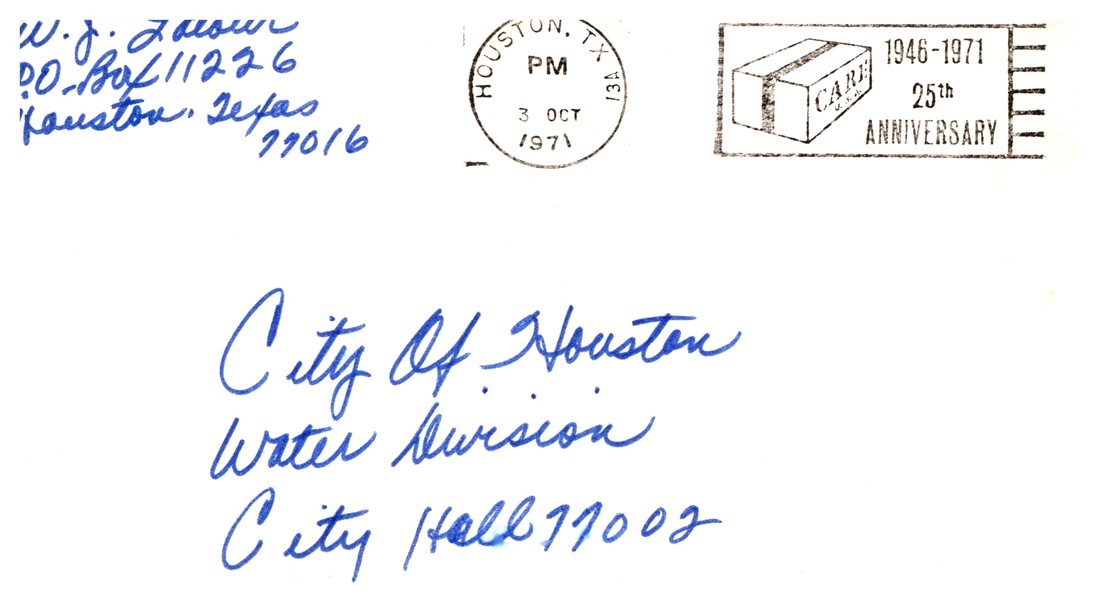 W. J.
P.O. Box 11226
Houston, Texas
77016
HOUSTON, TX
PM
3 OCT
1971
CARE
U.S.A.
1946-1971
25th
ANNIVERSARY
City Of Houston
Water Division
City Hall 77002